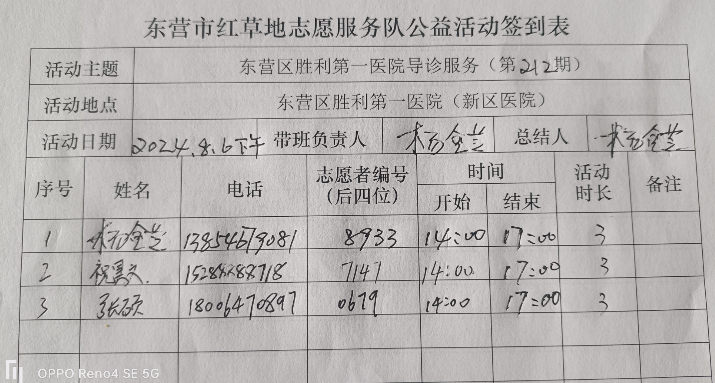 东营市红草地志愿服务队公益活动签到表
活动主题 东营区胜利第一医院导诊服务（第212期）
活动地点 东营区胜利第一医院（新区医院）
活动日期 2024.8.6下午 带班负责人 金芝 总结人 金芝
序号 姓名 电话 志愿者编号（后四位） 时间 开始 结束 活动时长 备注
1 金芝 13854679081 8933 14:00 17:00 3
2 祝 7147 14:00 17:00 3
3 张硕 18006470897 0679 14:00 17:00 3
OPPO Reno4 SE 5G